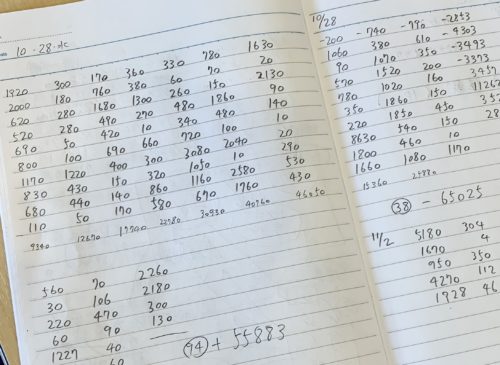 10 · 28
1920 300 170 360 330 780 1630
2000 180 760 380 60 70 20
620 280 1680 1300 260 150 2130
520 280 490 270 480 1860 90
690 50 420 10 340 480 140
800 100 690 660 720 100 10
1170 1220 400 300 3080 2040 20
830 430 150 320 1050 10 290
680 440 140 860 1160 2580 530
110 50 170 580 670 1760 430
9340 12670 17740 22780 30930 40760 46050
560 70 2260
30 106 2180
220 470 300
60 90 130
1227 40
60
(94) + 55883
10/28
-200 -740 -790 -2853
1060 380 610 -4303
90 1070 350 -3493
570 1520 200 -3373
780 1020 160 3457
350 1860 150 11262
220 1850 450
8630 540 150
1800 460 10
1660 1080 1170
15360
(38) - 65025
11/2
5180 304
1670 4
950 350
4270 112
1728 46